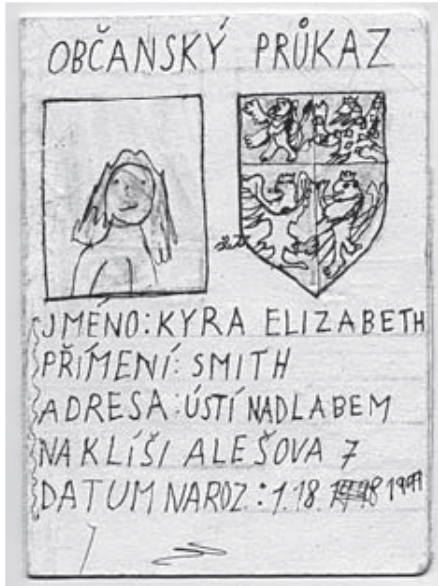 OBČANSKÝ PRŮKAZ
JMÉNO: KYRA ELIZABETH
PŘÍMENÍ: SMITH
ADRESA: ÚSTÍ NADLABEM
NA KLÍŠI ALEŠOVA 7
DATUM NAROZ.: 1.18.